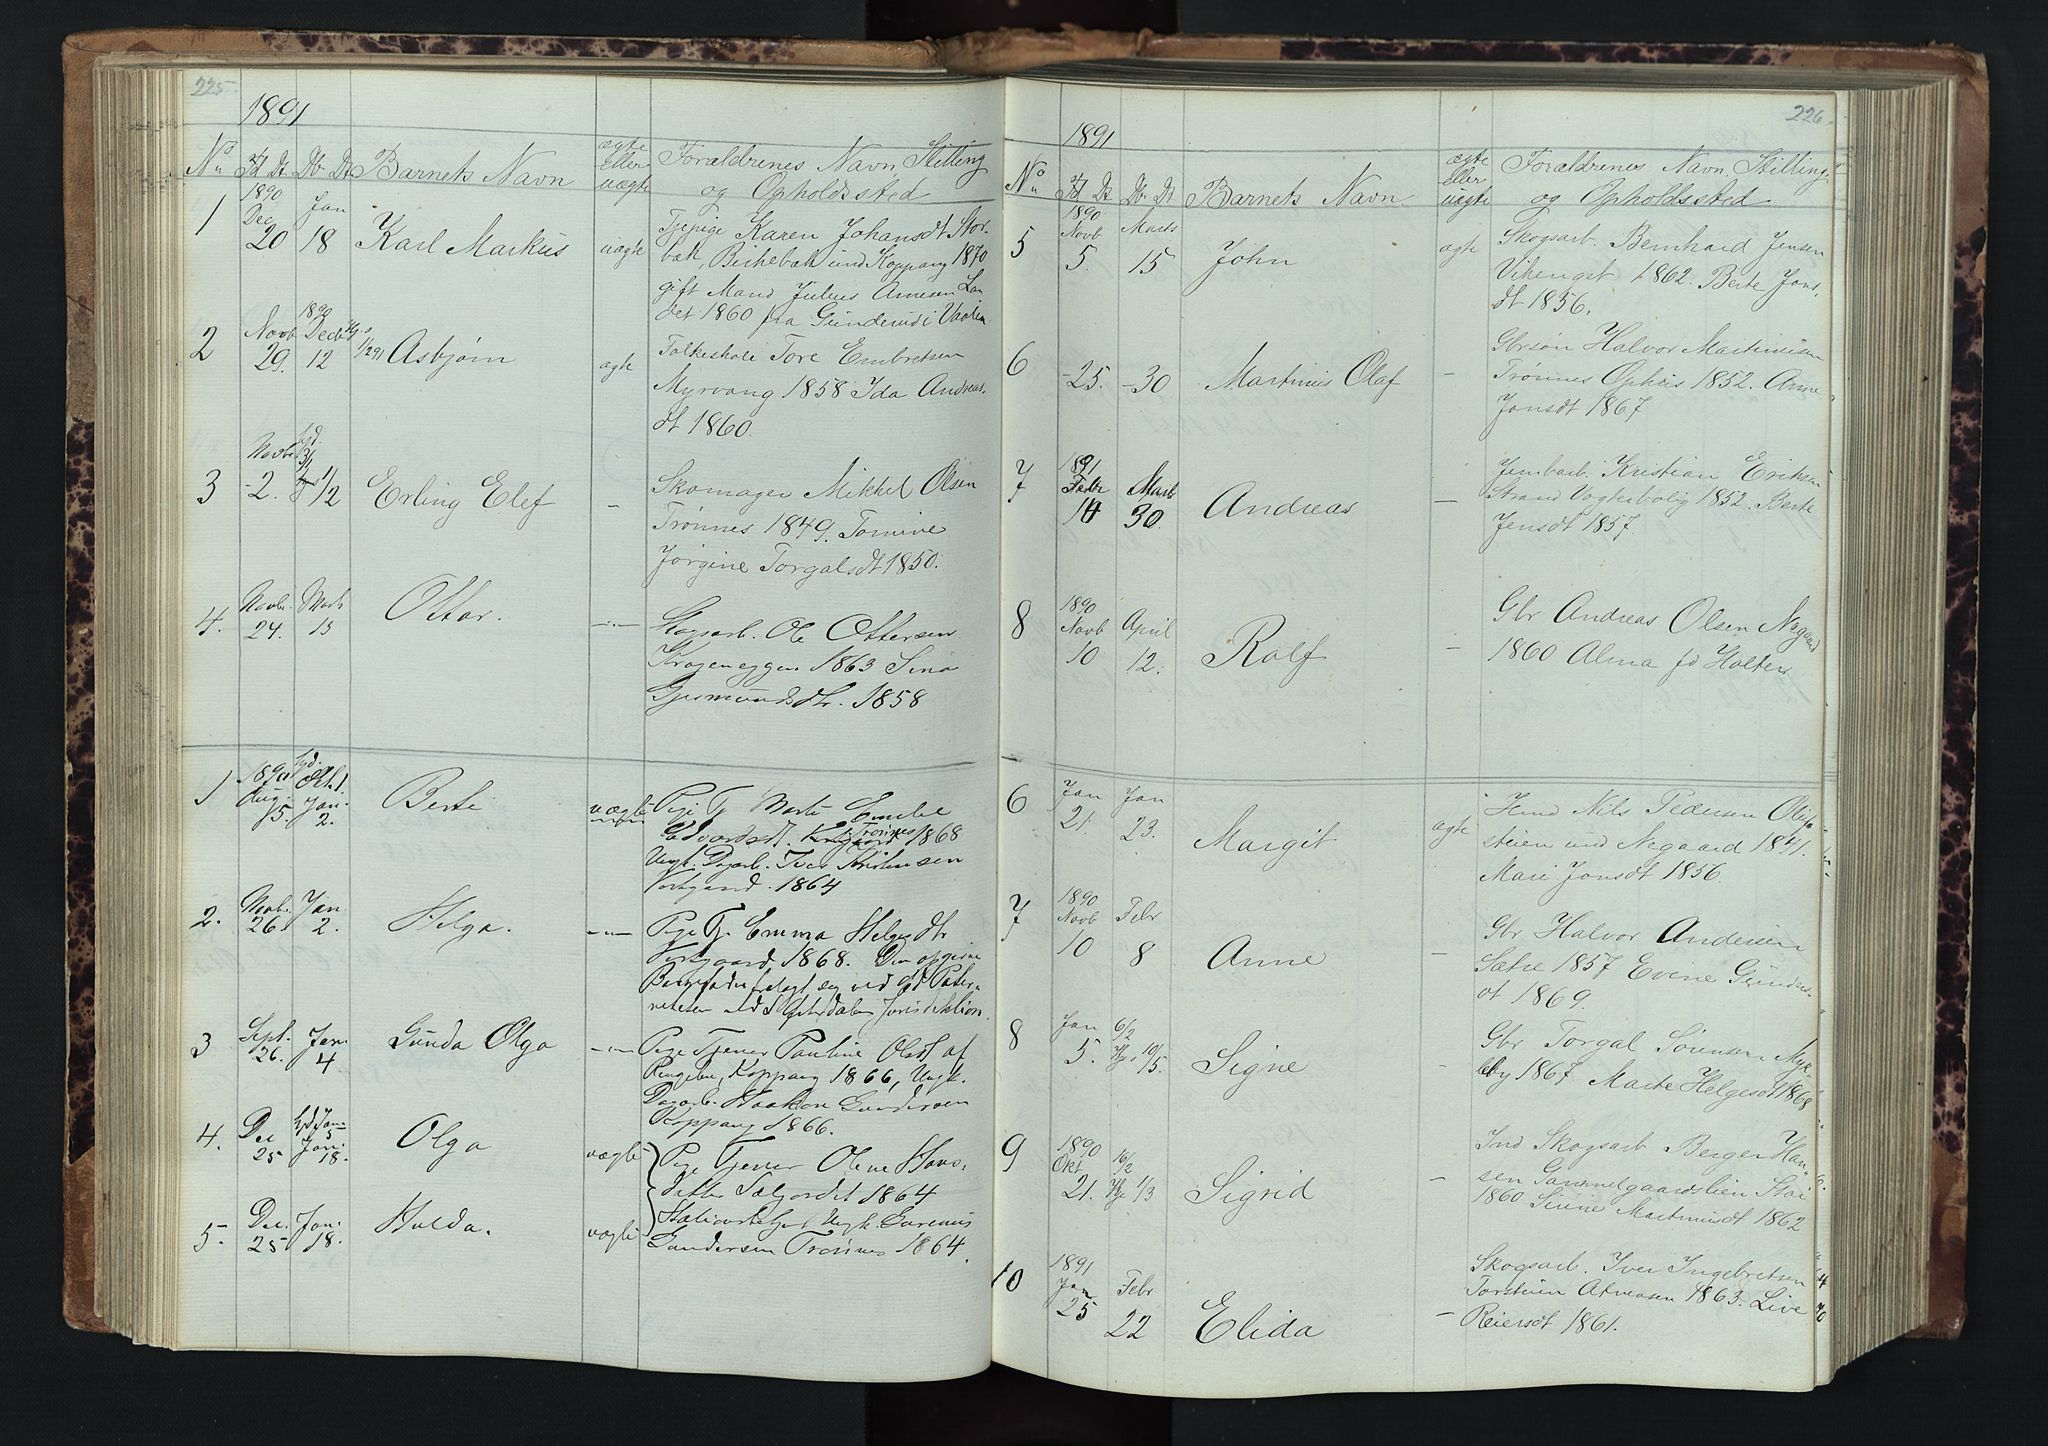 225
1891
No Fd Dt Db Dt Barnets Navn ægte eller uægte Forældrenes Navn, Stilling og Opholdssted
1 1890 Dec 20 Jan 18 Karl Markus uægte Tjepige Karen Johansdt Stor-
bæk, Birkebæk und Koppang 1870
gift Mand Julius Arnesen Lan
det 1860 fra Gunderud i Vaaler
2 Novb 29. 1890 Decb 12 Asbjørn ægte Folkeskole Tore Embretsen
Myrvang 1858 Ida Andreas.
dt 1860.
3 Novbr 2. 1/2 Erling Elef - Skomager Mikkel Olsen
Trønnes 1849. Tomine
Jørgine Torgalsdt 1850.
4. Novbr. 24. Marts 15 Ottar. Skogsarb. Ole Ottersen
Krogeneggen 1863 Sina
Gjermundsdtr. 1858
1 1890 Aug. 15. Jan. 2. Berte uægte Pige Tj Marte Emelie
Edvardsdt. Trønnes 1868
Ungk. Dagarb. Iver Kristiansen
Vestgaard. 1864
2. Novb. 26. Jan 2. Helga. Pige Tj. Emma Helgesdtr
Vestgaard, 1868. Den opgivne
Barnefader fralagt sig ved
Østerdalen Jurisdiktion.
3 Sept. 26. Jan. 4 Gunda Olga Pige Tjener Pauline Olsdt af
Ringebu, Koppang 1866, Ungk.
Dagarb. Haakon Gundersen
Koppang 1866.
4. Dec 25 Jan. 18. Olga uægte Pige Tjener Olene Hans.
datter Sæljordet 1864
5. Dec. 25 Jan. 18. Hulda. uægte Ungk. Gurenius
Gundersen Trønnes 1864.
226
1891
No Fd Dt Db Dt Barnets Navn. ægte eller uægte Forældrenes Navn, Stilling og Opholdssted
5 1890 Novb 5. Marts 15 John ægte Skogsarb. Bernhard Jensen
Vikenget 1862. Berte Jons.
dt 1856.
6 - 25. - 30 Martinus Olaf - Gbrsøn Halvor Martinusen
Trønnes Ophus 1852. Anne
Jonsdt 1867
7 1891 Febr 14 Marts 30. Andreas - Jernbarb. Kristian Eriksen
Strand Vogterbolig 1852. Berte
Jensdt 1857.
8 1890 Novb 10 April 12. Rolf - Gbr Andreas Olsen Negaard
1860 Alma fd Holter
6 Jan 21. Jan 23. Margit ægte Hmd Nils Pedersen Olaf
steien und Negaard 1841.
Mari Jonsdt 1856.
7 1890 Novb 10 Febr 8 Anne - Gbr Halvor Andersen
Sætre 1857 Evene Gunders-
dt 1869.
8 Jan 5. 6/2 10/5. Signe - Gbr Torgal Sørensen Myk-
leby 1867 Marte Helgesdt 1868
9 1890 Okt 21. 16/2 1/3 Sigrid - Ind Skogsarb Berger Han-
sen Gammelgaardslien Stai
1860 Sinne Martinusdt 1862
10 1891 Jan 25 Febr 22 Elida - Skogsarb. Iver Ingebretsen
Torsteien Atneosen 1863. Live
Reiersdt 1861.